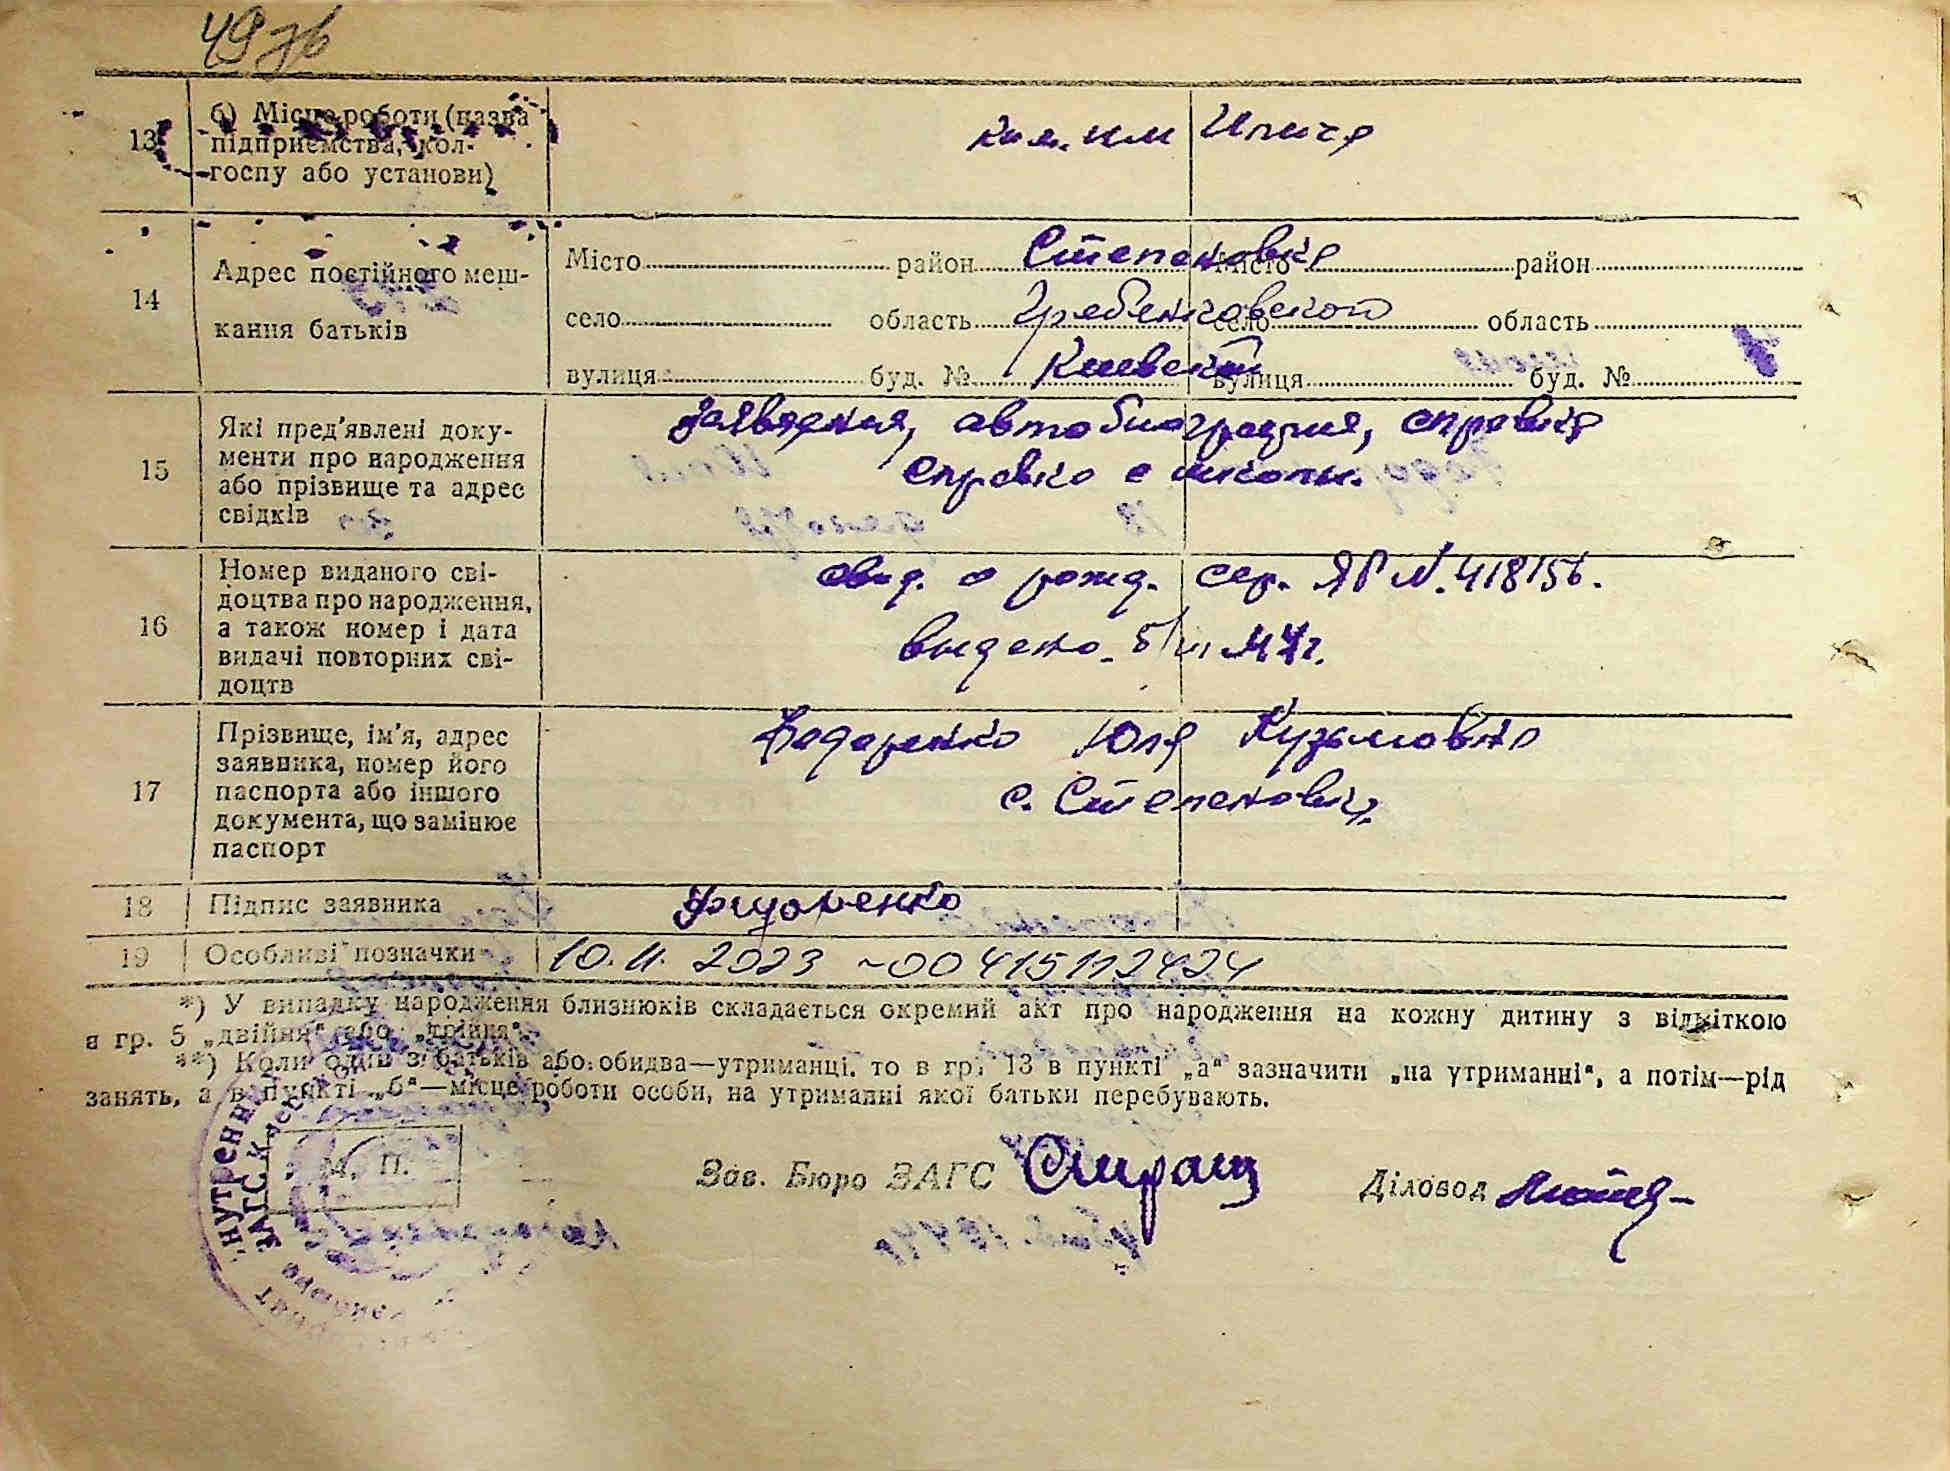 49 зв
13
б) Місце роботи (назва
підприємства, кол-
госпу або установи)
кол. им Ильича
14
Адрес постійного меш-
кання батьків
Місто район Степановка Місто район
село область Гребенковской село область
вулиця буд. № Киевской вулиця буд. №
15
Які пред'явлені доку-
менти про народження
або прізвище та адрес
свідків
Заявления, автобиография, справка
справка с школы.
16
Номер виданого сві-
доцтва про народження,
а також номер і дата
видачі повторних сві-
доцтв
свид. о рожд. сер. ЯР N. 418156.
выдано 5/VII 44г.
17
Прізвище, ім'я, адрес
заявника, номер його
паспорта або іншого
документа, що замінює
паспорт
Федоренко Юля Кузьмовна
с. Степановка
18 Підпис заявника Федоренко
19 Особливі позначки 10.11.2023 ~00415112424
*) У випадку народження близнюків складається окремий акт про народження на кожну дитину з відміткою
в гр. 5 „двійня“ або „трійня“.
**) Коли один з батьків або обидва—утриманці, то в гр. 13 в пункті „а“ зазначити „на утриманні“, а потім—рід
занять, а в пункті „б“—місце роботи особи, на утриманні якої батьки перебувають.
М. П.
Зав. Бюро ЗАГС
Діловод